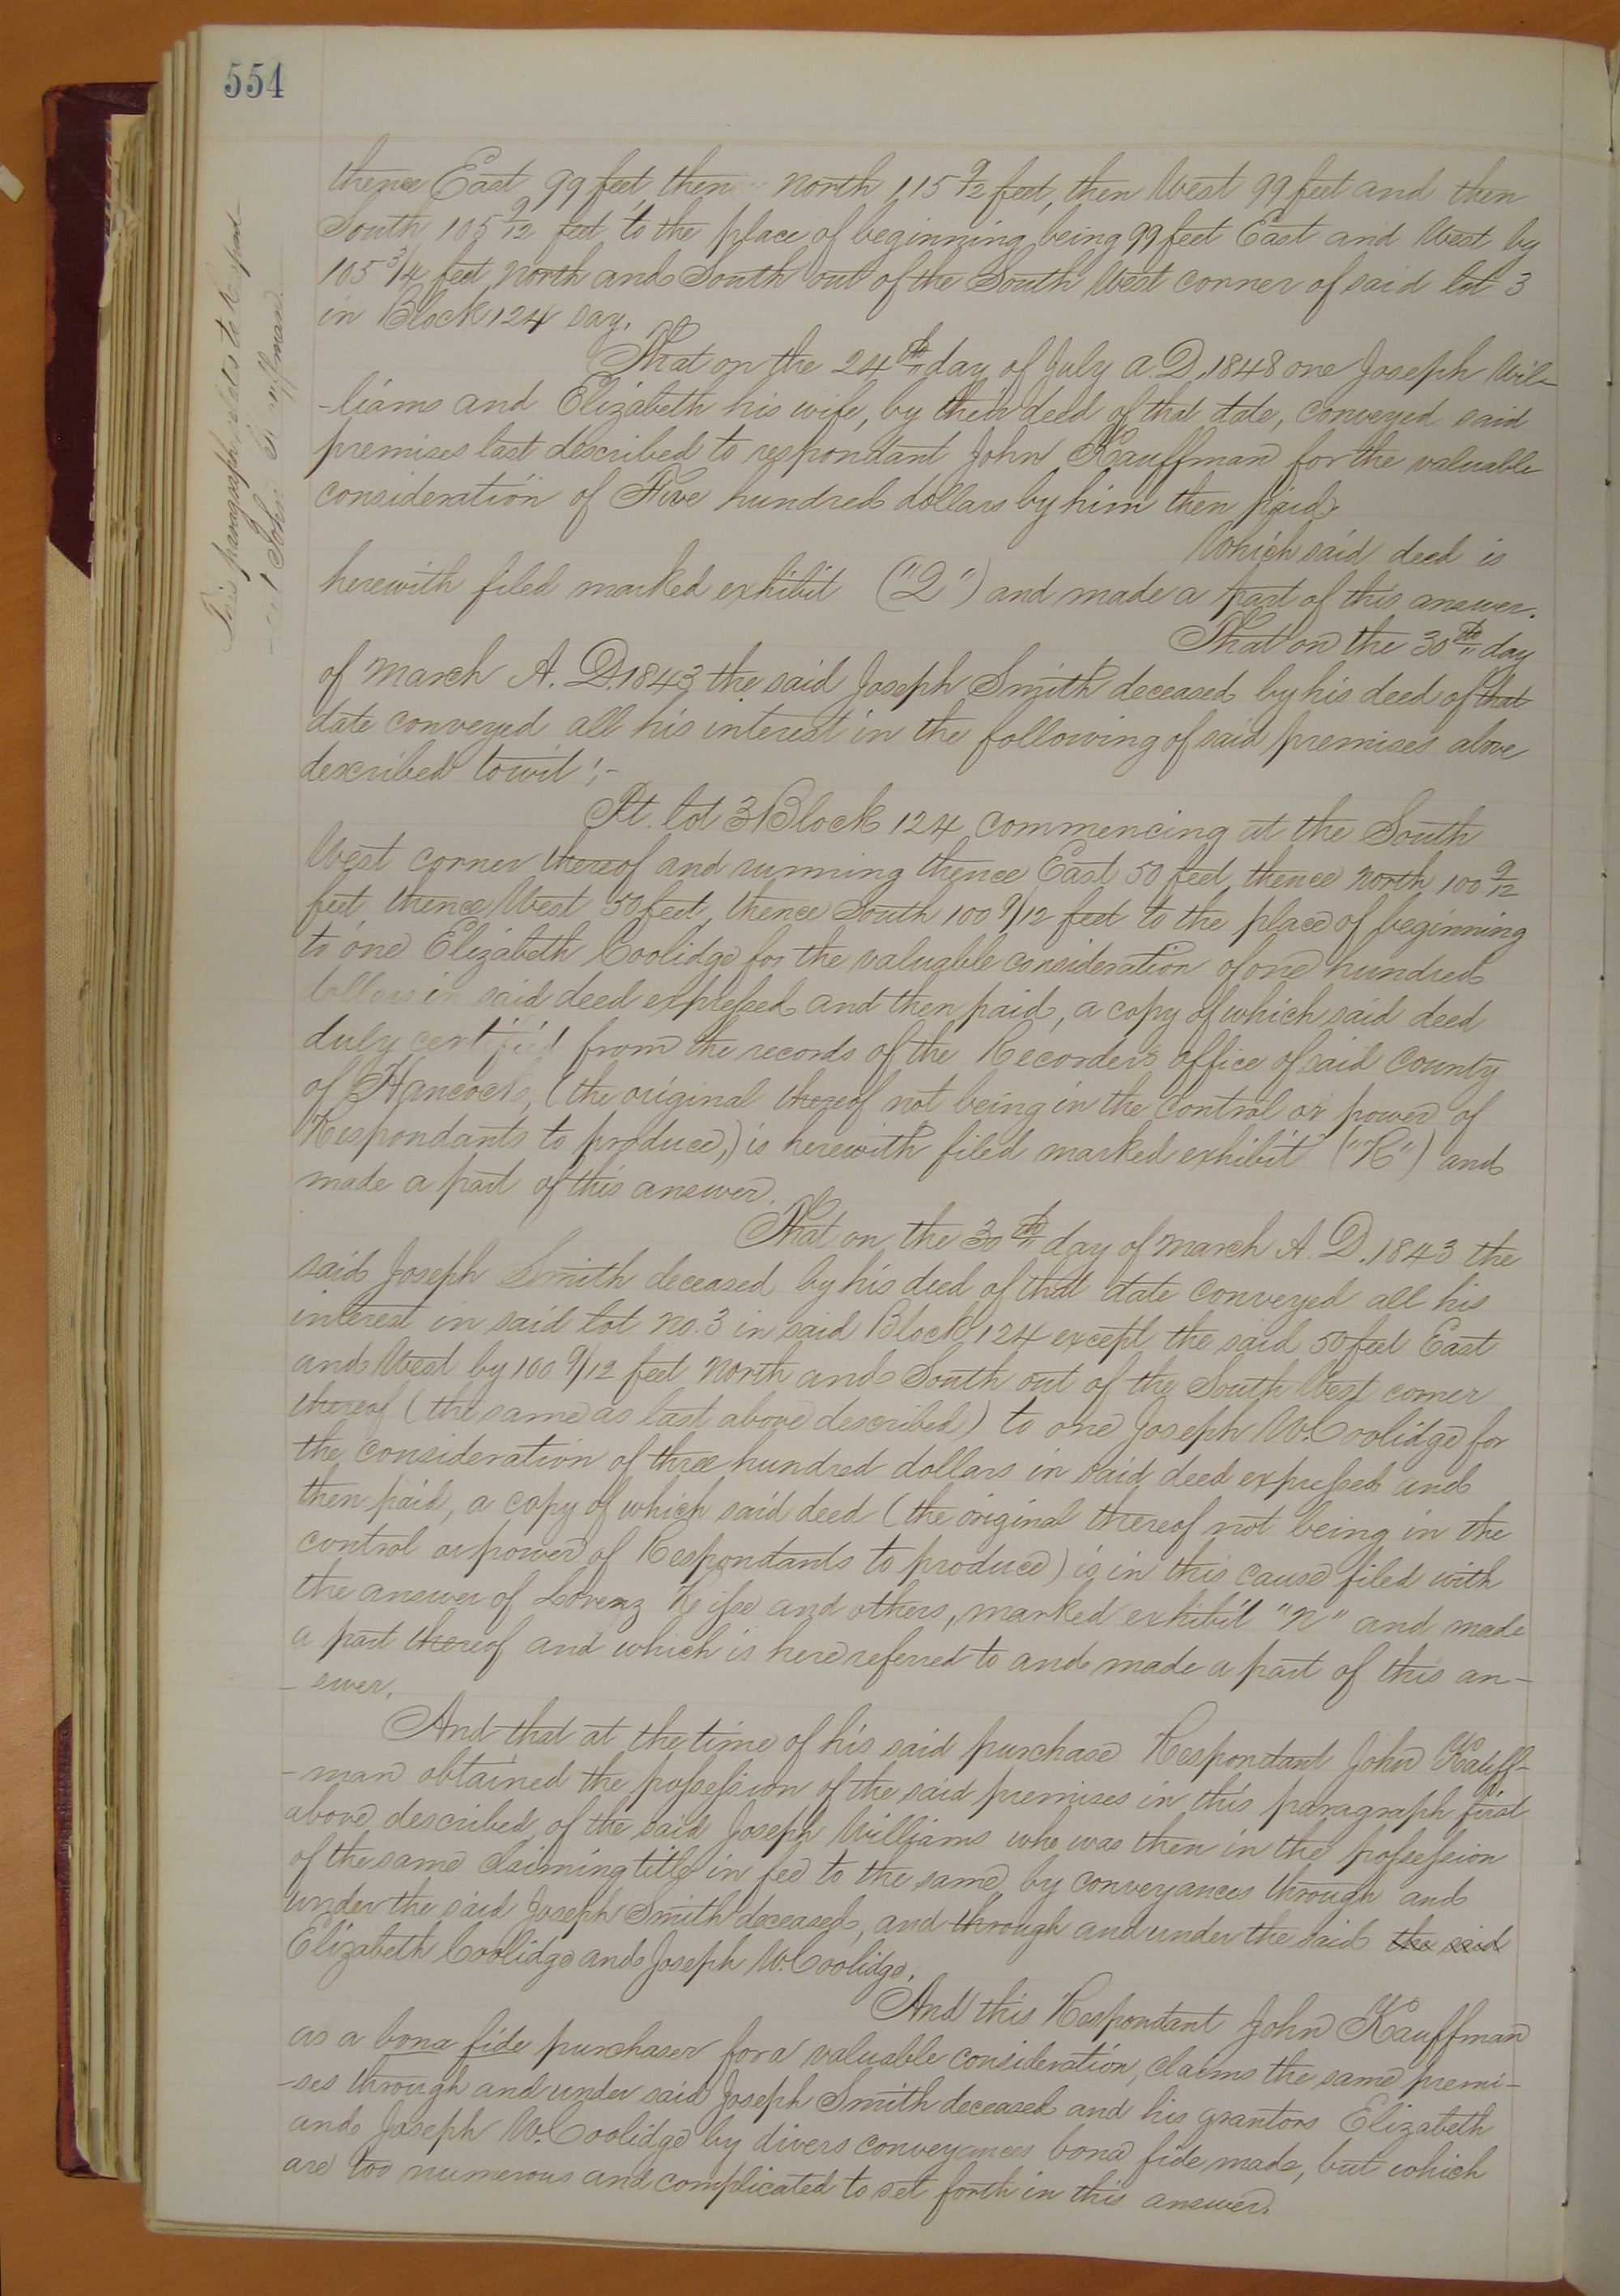 554
This paragraph relates to Respond-
-ent John Kauffman.
thence East 99 feet, then North 115 9/12 feet, then West 99 feet and then
South 105 9/12 feet to the place of beginning being 99 feet East and West by
105 3/4 feet North and South out of the South West corner of said lot 3
in Block 124 say.
That on the 24th day of July A.D. 1848 one Joseph Wil-
-liams and Elizabeth his wife, by their deed of that date, conveyed said
premises last described to respondant John Kauffman for the valuable
consideration of Five hundred dollars by him then paid.
Which said deed is
herewith filed marked exhibit ("2") and made a part of this answer.
That on the 30th day
of March A.D. 1843 the said Joseph Smith deceased by his deed of that
date conveyed all his interest in the following of said premises above
described towit:-
Pt. lot 3 Block 124 commencing at the South
West corner thereof and running thence East 50 feet thence North 100 9/12
feet thence West 50 feet, thence South 100 9/12 feet to the place of beginning
to one Elizabeth Coolidge for the valuable consideration of one hundred
dollars in said deed expressed and then paid, a copy of which said deed
duly certified from the records of the Recorder's office of said County
of Hancock, (the original thereof not being in the control or power of
Respondants to produce,) is herewith filed marked exhibit ("R") and
made a part of this answer.
That on the 30th day of March A.D. 1843 the
said Joseph Smith deceased by his deed of that date conveyed all his
interest in said lot No. 3 in said Block 124 except the said 50 feet East
and West by 100 9/12 feet North and South out of the South West corner
thereof (the same as last above described) to one Joseph W. Coolidge for
the consideration of three hundred dollars in said deed expressed and
then paid, a copy of which said deed (the original thereof not being in the
control or power of Respondants to produce) is in this cause filed with
the answer of Lorenz and others, marked exhibit "N" and made
a part thereof and which is here referred to and made a part of this an-
-swer.
And that at the time of his said purchase Respondant John Kauff-
-man obtained the possession of the said premises in this paragraph first
above described of the said Joseph Williams who was then in the possession
of the same claiming title in fee to the same by conveyances through and
under the said Joseph Smith deceased, and through and under the said the said
Elizabeth Coolidge and Joseph W. Coolidge.
And this Respondant John Kauffman
as a bona fide purchaser for a valuable consideration, claims the same premi-
-ses through and under said Joseph Smith deceased and his grantors Elizabeth
and Joseph W. Coolidge by divers conveyances bona fide made, but which
are too numerous and complicated to set forth in this answer.